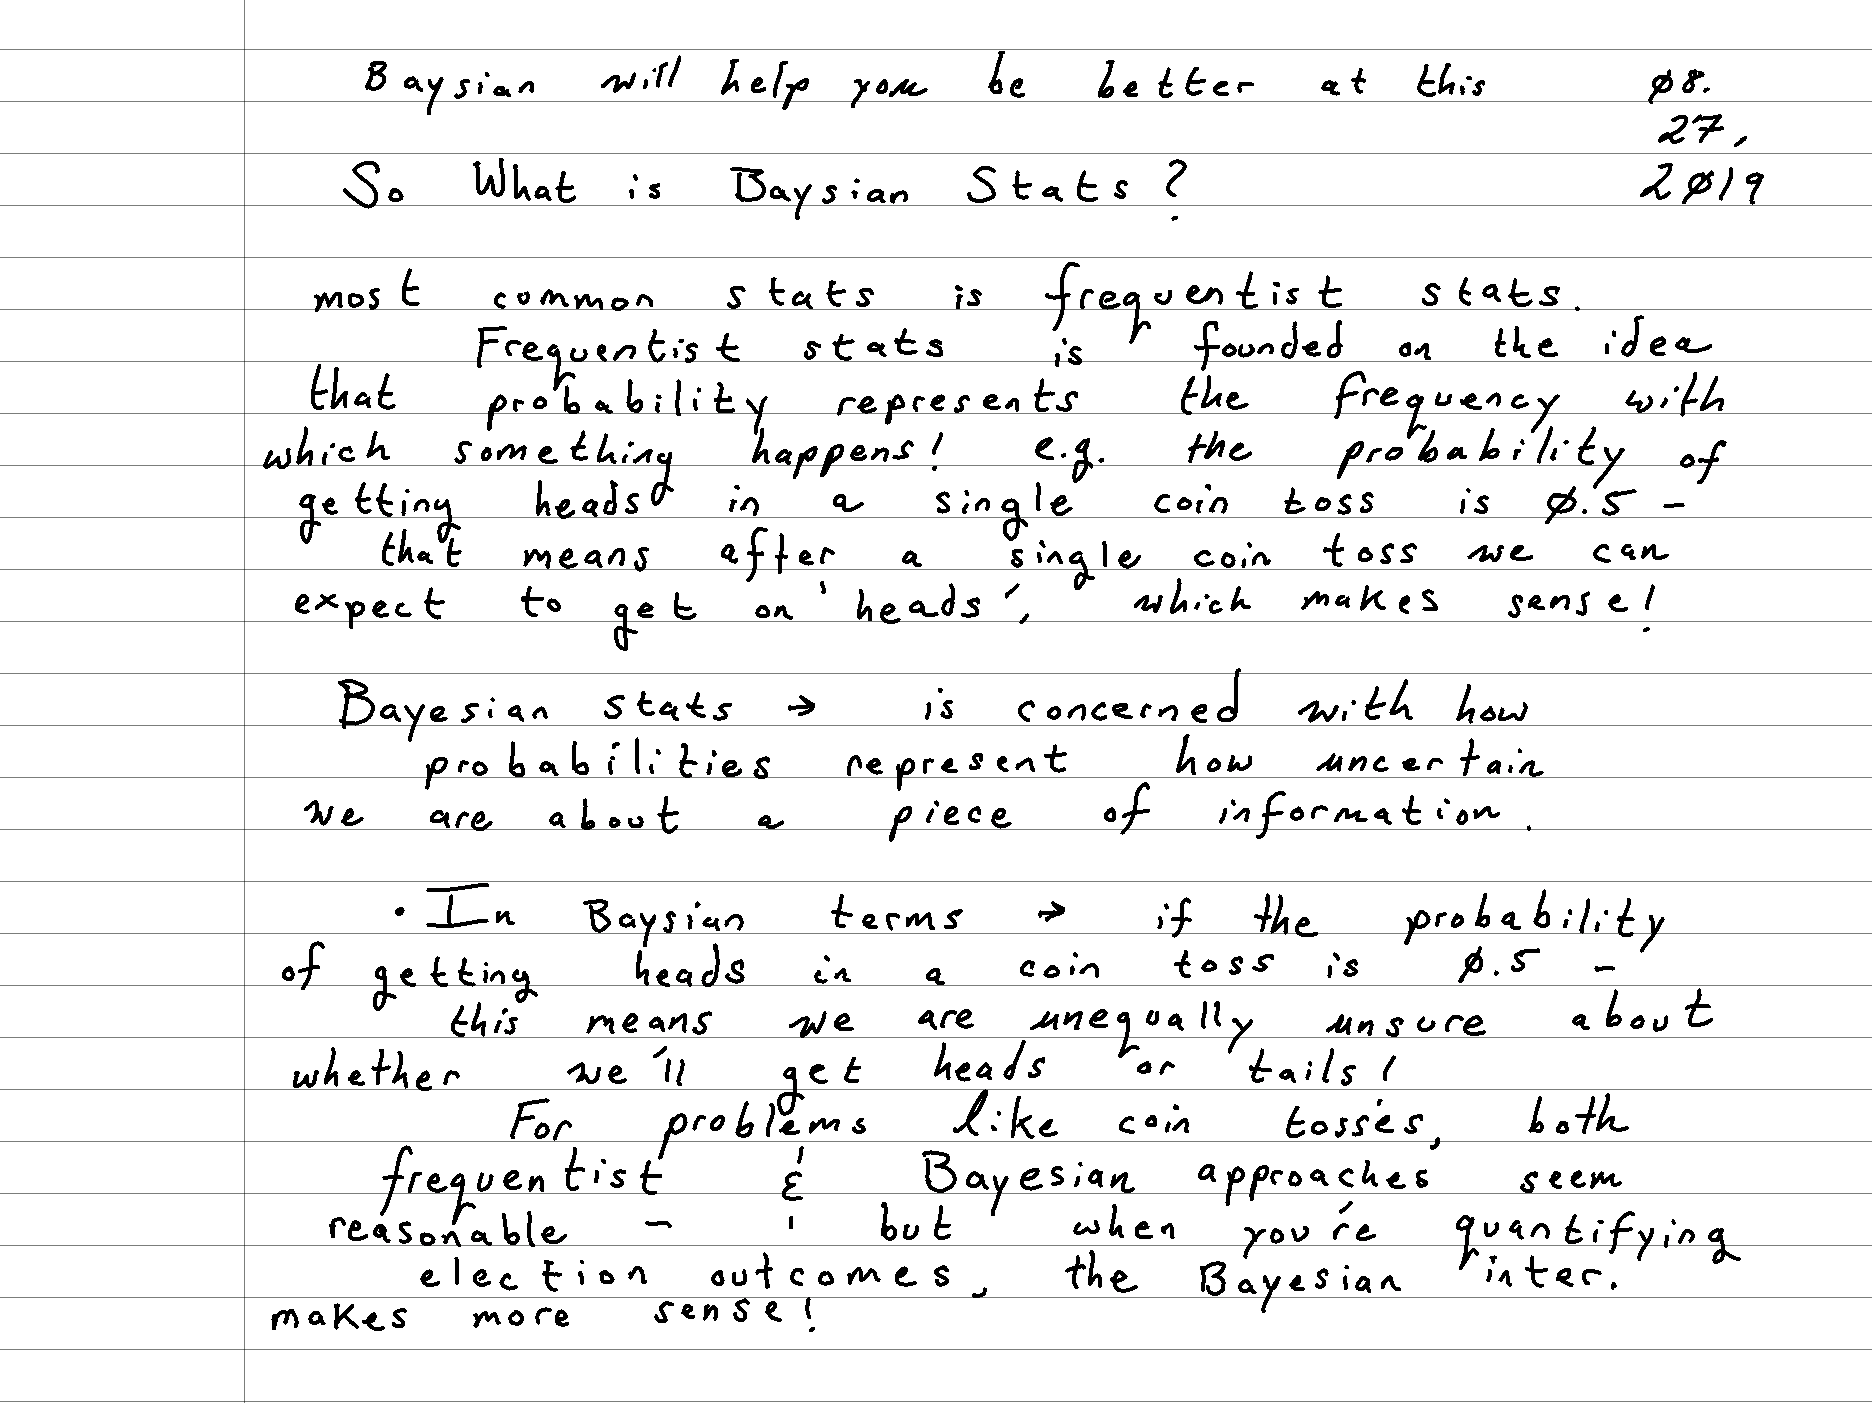 Baysian will help you be better at this
ø8.
27,
2ø19
So What is Baysian Stats?
most common stats is frequentist stats.
Frequentist stats is founded on the idea
that probability represents the frequency with
which something happens! e.g. the probability of
getting heads in a single coin toss is ø.5 -
that means after a single coin toss we can
expect to get on 'heads', which makes sense!
Bayesian stats → is concerned with how
probabilities represent how uncertain
we are about a piece of information.
• In Baysian terms → if the probability
of getting heads in a coin toss is ø.5 -
this means we are unequally unsure about
whether we'll get heads or tails!
For problems like coin tosses, both
frequentist & Bayesian approaches seem
reasonable - but when you're quantifying
election outcomes, the Bayesian inter.
makes more sense!